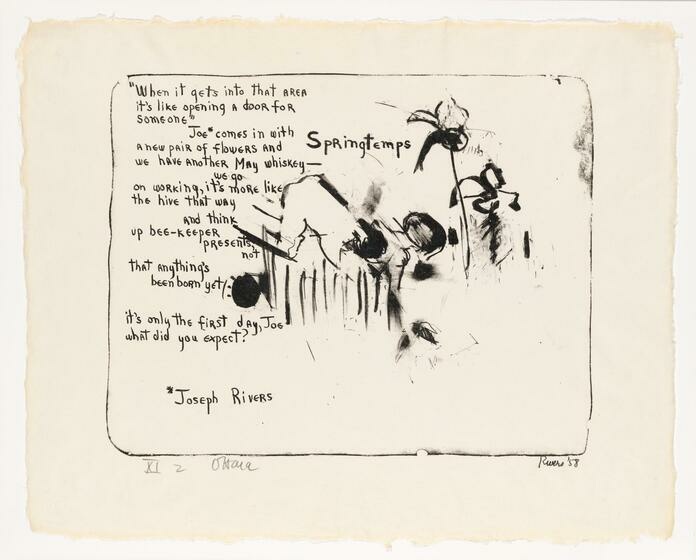 "When it gets into that area
it's like opening a door for
someone"
Joe* comes in with
a new pair of flowers and
we have another May whiskey—
we go
on working, it's more like
the hive that way
and think
up bee-keeper
presents,
not
that anything's
been born yet/:
it's only the first day, Joe
what did you expect?
*Joseph Rivers
Springtemps
XI 2 O'Hara
Rivers '58